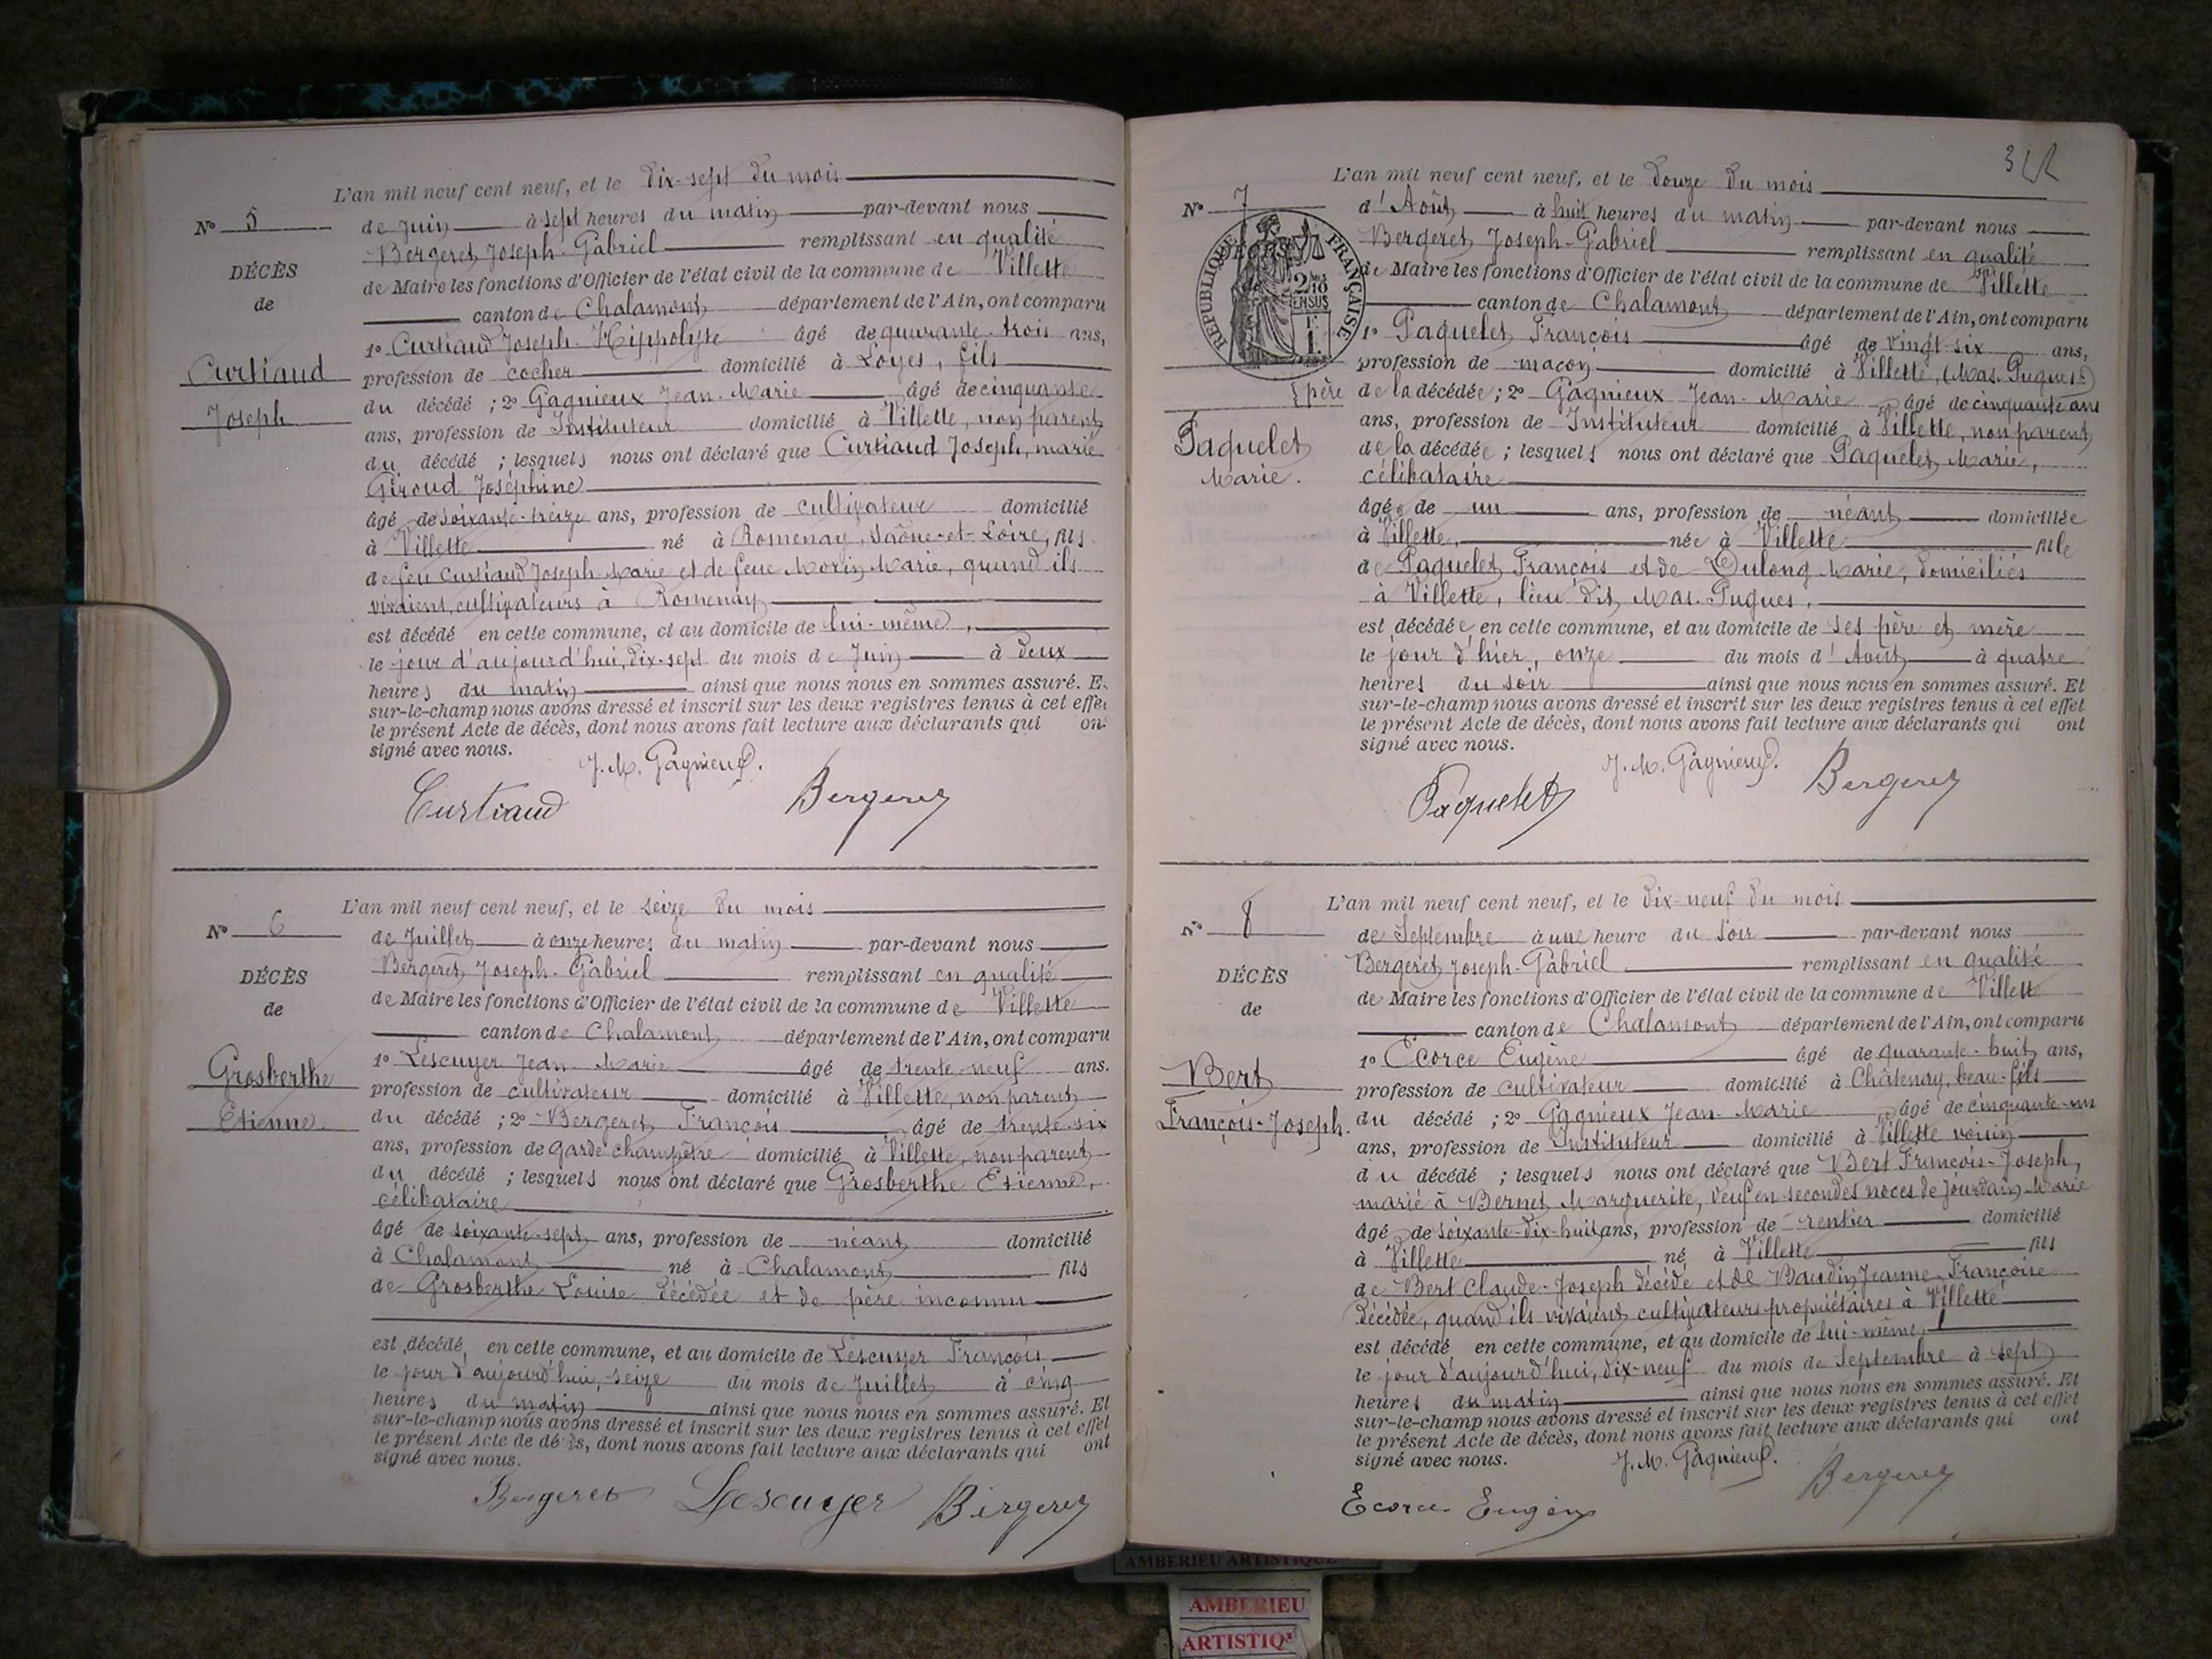 L'an mil neuf cent neuf, et le dix-sept du mois
N° 5
de Juin à sept heures du matin par-devant nous
Bergeret Joseph-Gabriel remplissant en qualité
DÉCÈS
de Maire les fonctions d'Officier de l'état civil de la commune de Villette
de
canton de Chalamont département de l'Ain, ont comparu
1° Curtiaud Joseph-Hippolyte âgé de quarante-trois ans,
Curtiaud
profession de cocher domicilié à Loyes, fils
Joseph
du décédé ; 2° Gagnieux Jean-Marie âgé de cinquante
ans, profession de Instituteur domicilié à Villette, non parent
du décédé ; lesquels nous ont déclaré que Curtiaud Joseph, marié
Giroud Joséphine
âgé de soixante-treize ans, profession de cultivateur domicilié
à Villette né à Romenay, Saône-et-Loire, fils
de feu Curtiaud Joseph-Marie et de feue Morin Marie, quand ils
vivaient, cultivateurs à Romenay
est décédé en cette commune, et au domicile de lui-même,
le jour d'aujourd'hui, dix-sept du mois de Juin à deux
heures du matin ainsi que nous nous en sommes assuré. E
sur-le-champ nous avons dressé et inscrit sur les deux registres tenus à cet effet
le présent Acte de décès, dont nous avons fait lecture aux déclarants qui ont
signé avec nous.
J. M. Gagnieux.
Curtiaud Bergeret
L'an mil neuf cent neuf, et le seize du mois
N° 6
de Juillet à onze heures du matin par-devant nous
Bergeret Joseph-Gabriel remplissant en qualité
DÉCÈS
de Maire les fonctions d'Officier de l'état civil de la commune de Villette
de
canton de Chalamont département de l'Ain, ont comparu
1° Lescuyer Jean Marie âgé de trente-neuf ans.
Grosberthe
profession de cultivateur domicilié à Villette, non parent
Etienne.
du décédé ; 2° Bergeret François âgé de trente-six
ans, profession de Garde champêtre domicilié à Villette, non parent
du décédé ; lesquels nous ont déclaré que Grosberthe Etienne,
célibataire
âgé de soixante-sept ans, profession de néant domicilié
à Chalamont né à Chalamont fils
de Grosberthe Louise décédée et de père inconnu
est décédé, en cette commune, et au domicile de Lescuyer François
le jour d'aujourd'hui, seize du mois de Juillet à cinq
heures du matin ainsi que nous nous en sommes assuré. Et
sur-le-champ nous avons dressé et inscrit sur les deux registres tenus à cet effet
le présent Acte de décès, dont nous avons fait lecture aux déclarants qui ont
signé avec nous.
Bergeret Lescuyer Bergeret
L'an mil neuf cent neuf, et le douze du mois
N° 7
d'Août à huit heures du matin par-devant nous
Bergeret Joseph-Gabriel remplissant en qualité
RÉPUBLIQUE FRANÇAISE
2/10
EN SUS
1 F
de Maire les fonctions d'Officier de l'état civil de la commune de Villette
canton de Chalamont département de l'Ain, ont comparu
1° Paquelet François âgé de vingt-six ans,
profession de maçon domicilié à Villette, (Mas-Pugues)
père de la décédée ; 2° Gagnieux Jean-Marie âgé de cinquante ans
ans, profession de Instituteur domicilié à Villette, non parent
Paquelet
de la décédée ; lesquels nous ont déclaré que Paquelet Marie,
Marie.
célibataire
âgée de un ans, profession de néant domiciliée
à Villette, née à Villette fille
de Paquelet François et de Dulong Marie, domiciliés
à Villette, lieu dit Mas-Pugues,
est décédée en cette commune, et au domicile de ses père et mère
le jour d'hier, onze du mois d'Août à quatre
heures du soir ainsi que nous nous en sommes assuré. Et
sur-le-champ nous avons dressé et inscrit sur les deux registres tenus à cet effet
le présent Acte de décès, dont nous avons fait lecture aux déclarants qui ont
signé avec nous.
J. M. Gagnieux.
Paquelet Bergeret
L'an mil neuf cent neuf, et le dix-neuf du mois
N° 8
de Septembre à une heure du soir par-devant nous
Bergeret Joseph-Gabriel remplissant en qualité
DÉCÈS
de Maire les fonctions d'Officier de l'état civil de la commune de Villette
de
canton de Chalamont département de l'Ain, ont comparu
1° Ecorce Eugène âgé de quarante-huit ans,
Bert
profession de cultivateur domicilié à Châtenay, beau-fils
François-Joseph.
du décédé ; 2° Gagnieux Jean-Marie âgé de cinquante-un
ans, profession de Instituteur domicilié à Villette voisin
du décédé ; lesquels nous ont déclaré que Bert François-Joseph,
marié à Bernet Marguerite, veuf en secondes noces de Jourdain Marie
âgé de soixante-dix-huit ans, profession de rentier domicilié
à Villette né à Villette fils
de Bert Claude-Joseph décédé et de Baudin Jeanne-Françoise
décédée, quand ils vivaient cultivateurs propriétaires à Villette
est décédé en cette commune, et au domicile de lui-même,
le jour d'aujourd'hui, dix-neuf du mois de Septembre à sept
heures du matin ainsi que nous nous en sommes assuré. Et
sur-le-champ nous avons dressé et inscrit sur les deux registres tenus à cet effet
le présent Acte de décès, dont nous avons fait lecture aux déclarants qui ont
signé avec nous.
J. M. Gagnieux.
Ecorce Eugène Bergeret
AMBERIEU ARTISTIQUE
AMBERIEU
ARTISTIQ